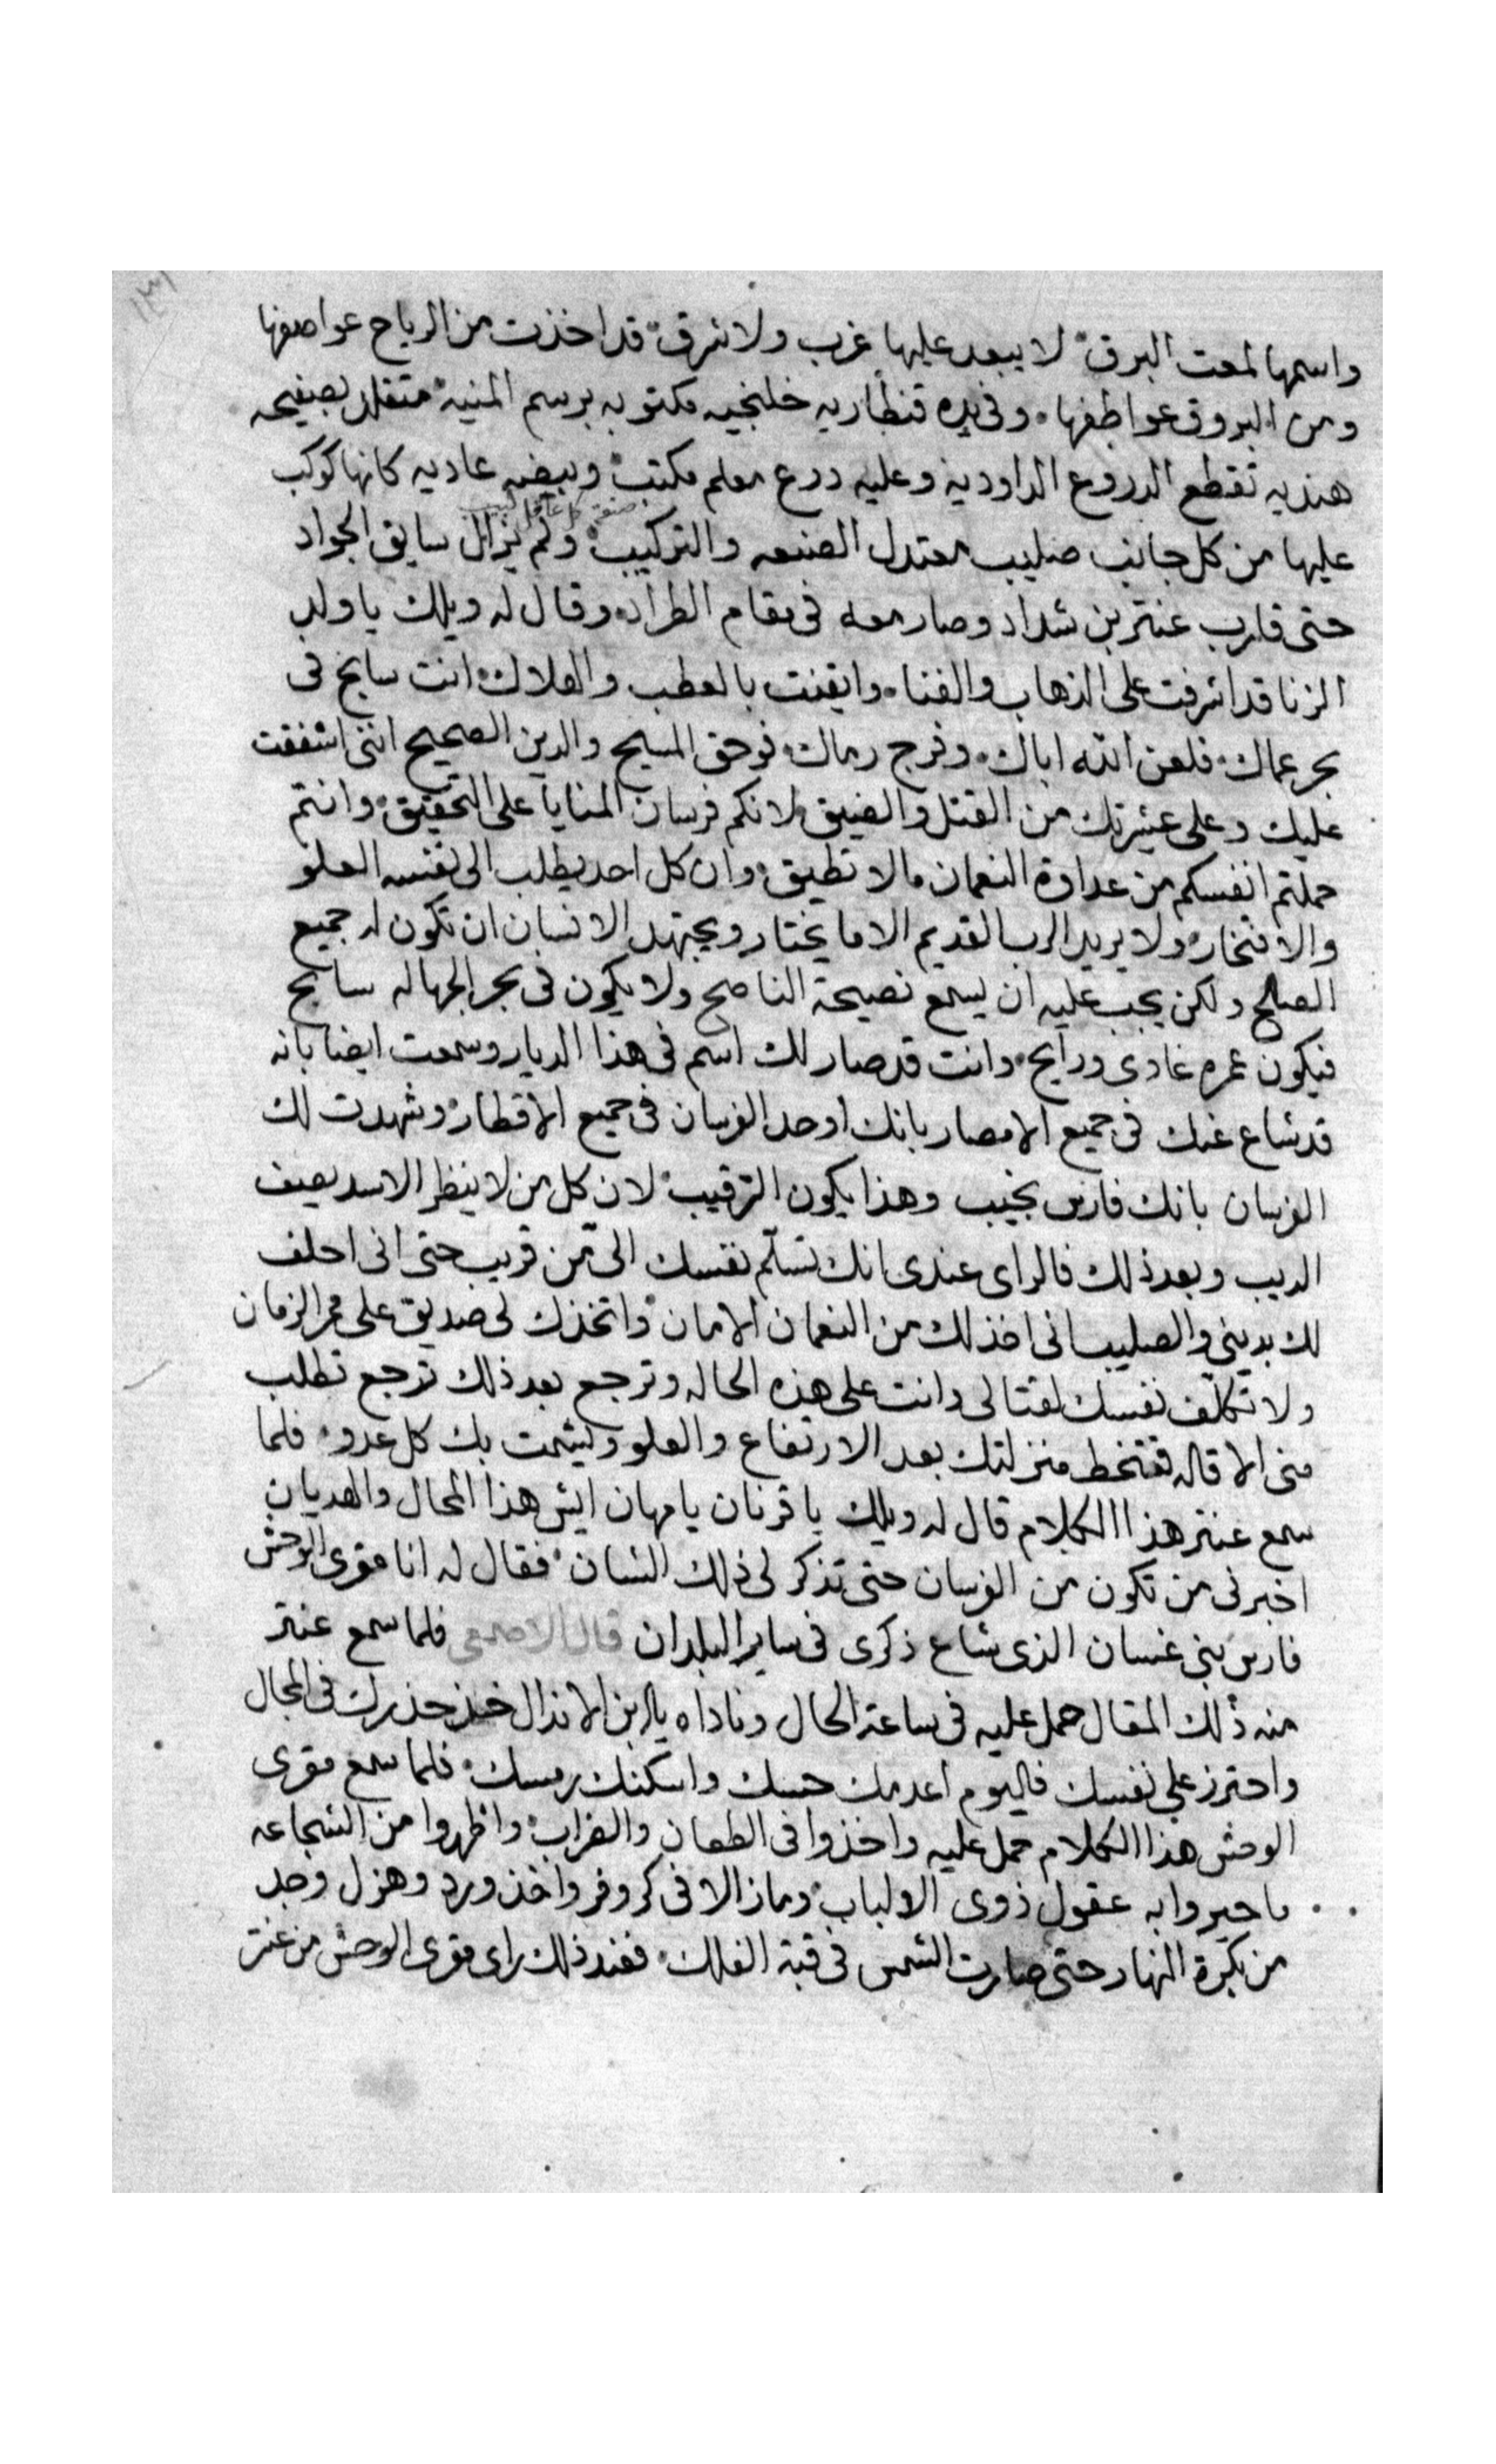 ١٣١
واسمها لمعت البرق لا يبعد عليها غرب ولا شرق قد اخذت من الرياح عواصفها
ومن البروق عواطفها وفى يده قنطاريه خلنجيه مكتوبه برسم المنيه متقلد بصفيحه
هنديه تقطع الدروع الداوديه وعليه درع معلم مكتب وبيضه عاديه كانها كوكب
عليها من كل جانب صليب معتدل الصنعه والتركيب صنعة كل عاقل لبيب ولم يزال سايق الجواد
حتى قارب عنتر بن شداد وصار معه فى مقام الطراد وقال له ويلك يا ولد
الزنا قد اشرفت على الذهاب والفنا وايقنت بالعطب والهلاك انت سابح فى
بحر عماك فلعن الله اباك وفرج رماك فوحق المسيح والدين الصحيح اننى اشفقت
عليك وعلى عشيرتك من القتل والضيق لانكم فرسان المنايا على التحقيق وانتم
حملتم انفسكم من عداوة النعمان ما لا تطيق وان كل احد يطلب الى نفسه العلو
والافتخار ولا يريد الرب القديم الا ما يختار ويجتهد الانسان ان تكون له جميع
الصلح ولكن يجب عليه ان يسمع نصيحة الناصح ولا يكون فى بحر الجهاله سابح
فيكون عمره غادى ورايح وانت قد صار لك اسم فى هذا الديار وسمعت ايضا بانه
قد شاع عنك فى جميع الامصار بانك اوحد الفرسان فى جميع الاقطار وشهدت لك
الفرسان بانك فارس نجيب وهذا يكون الترقيب لان كل من لا ينظر الاسد يصيف
الديب وبعد ذلك فالراى عندى انك تسلم نفسك الى من قريب حتى انى احلف
لك بدينى والصليب انى اخذ لك من النعمان الامان واتخذك لى صديق على ممر الزمان
ولا تكلف نفسك لقتالى وانت على هذه الحاله وترجع بعد ذلك ترجع تطلب
منى الاقاله فتنحط منزلتك بعد الارتفاع والعلو ويشمت بك كل عدو فلما
سمع عنتر هذا الكلام قال له ويلك يا قرنان يا مهان ايش هذا المحال والهديان
اخبرنى من تكون من الفرسان حتى تذكر لى ذلك الشان فقال له انا مقرى الوحش
فارس بنى غسان الذى شاع ذكرى فى ساير البلدان قال الاصمعى فلما سمع عنتر
منه ذلك المقال حمل عليه فى ساعة الحال وناداه يا بن الاندال خذ حذرك فى المجال
واحترز على نفسك فاليوم اعدمك حسك واسكنك رمسك فلما سمع مقرى
الوحش هذا الكلام حمل عليه واخذوا فى الطعان والضراب واظهروا من الشجاعه
ما حيروا به عقول ذوى الالباب وما زالا فى كر وفر واخذ ورد وهزل وجد
من بكرة النهار حتى صارت الشمس فى قبة الفلك فعند ذلك راى مقرى الوحش من عنتر